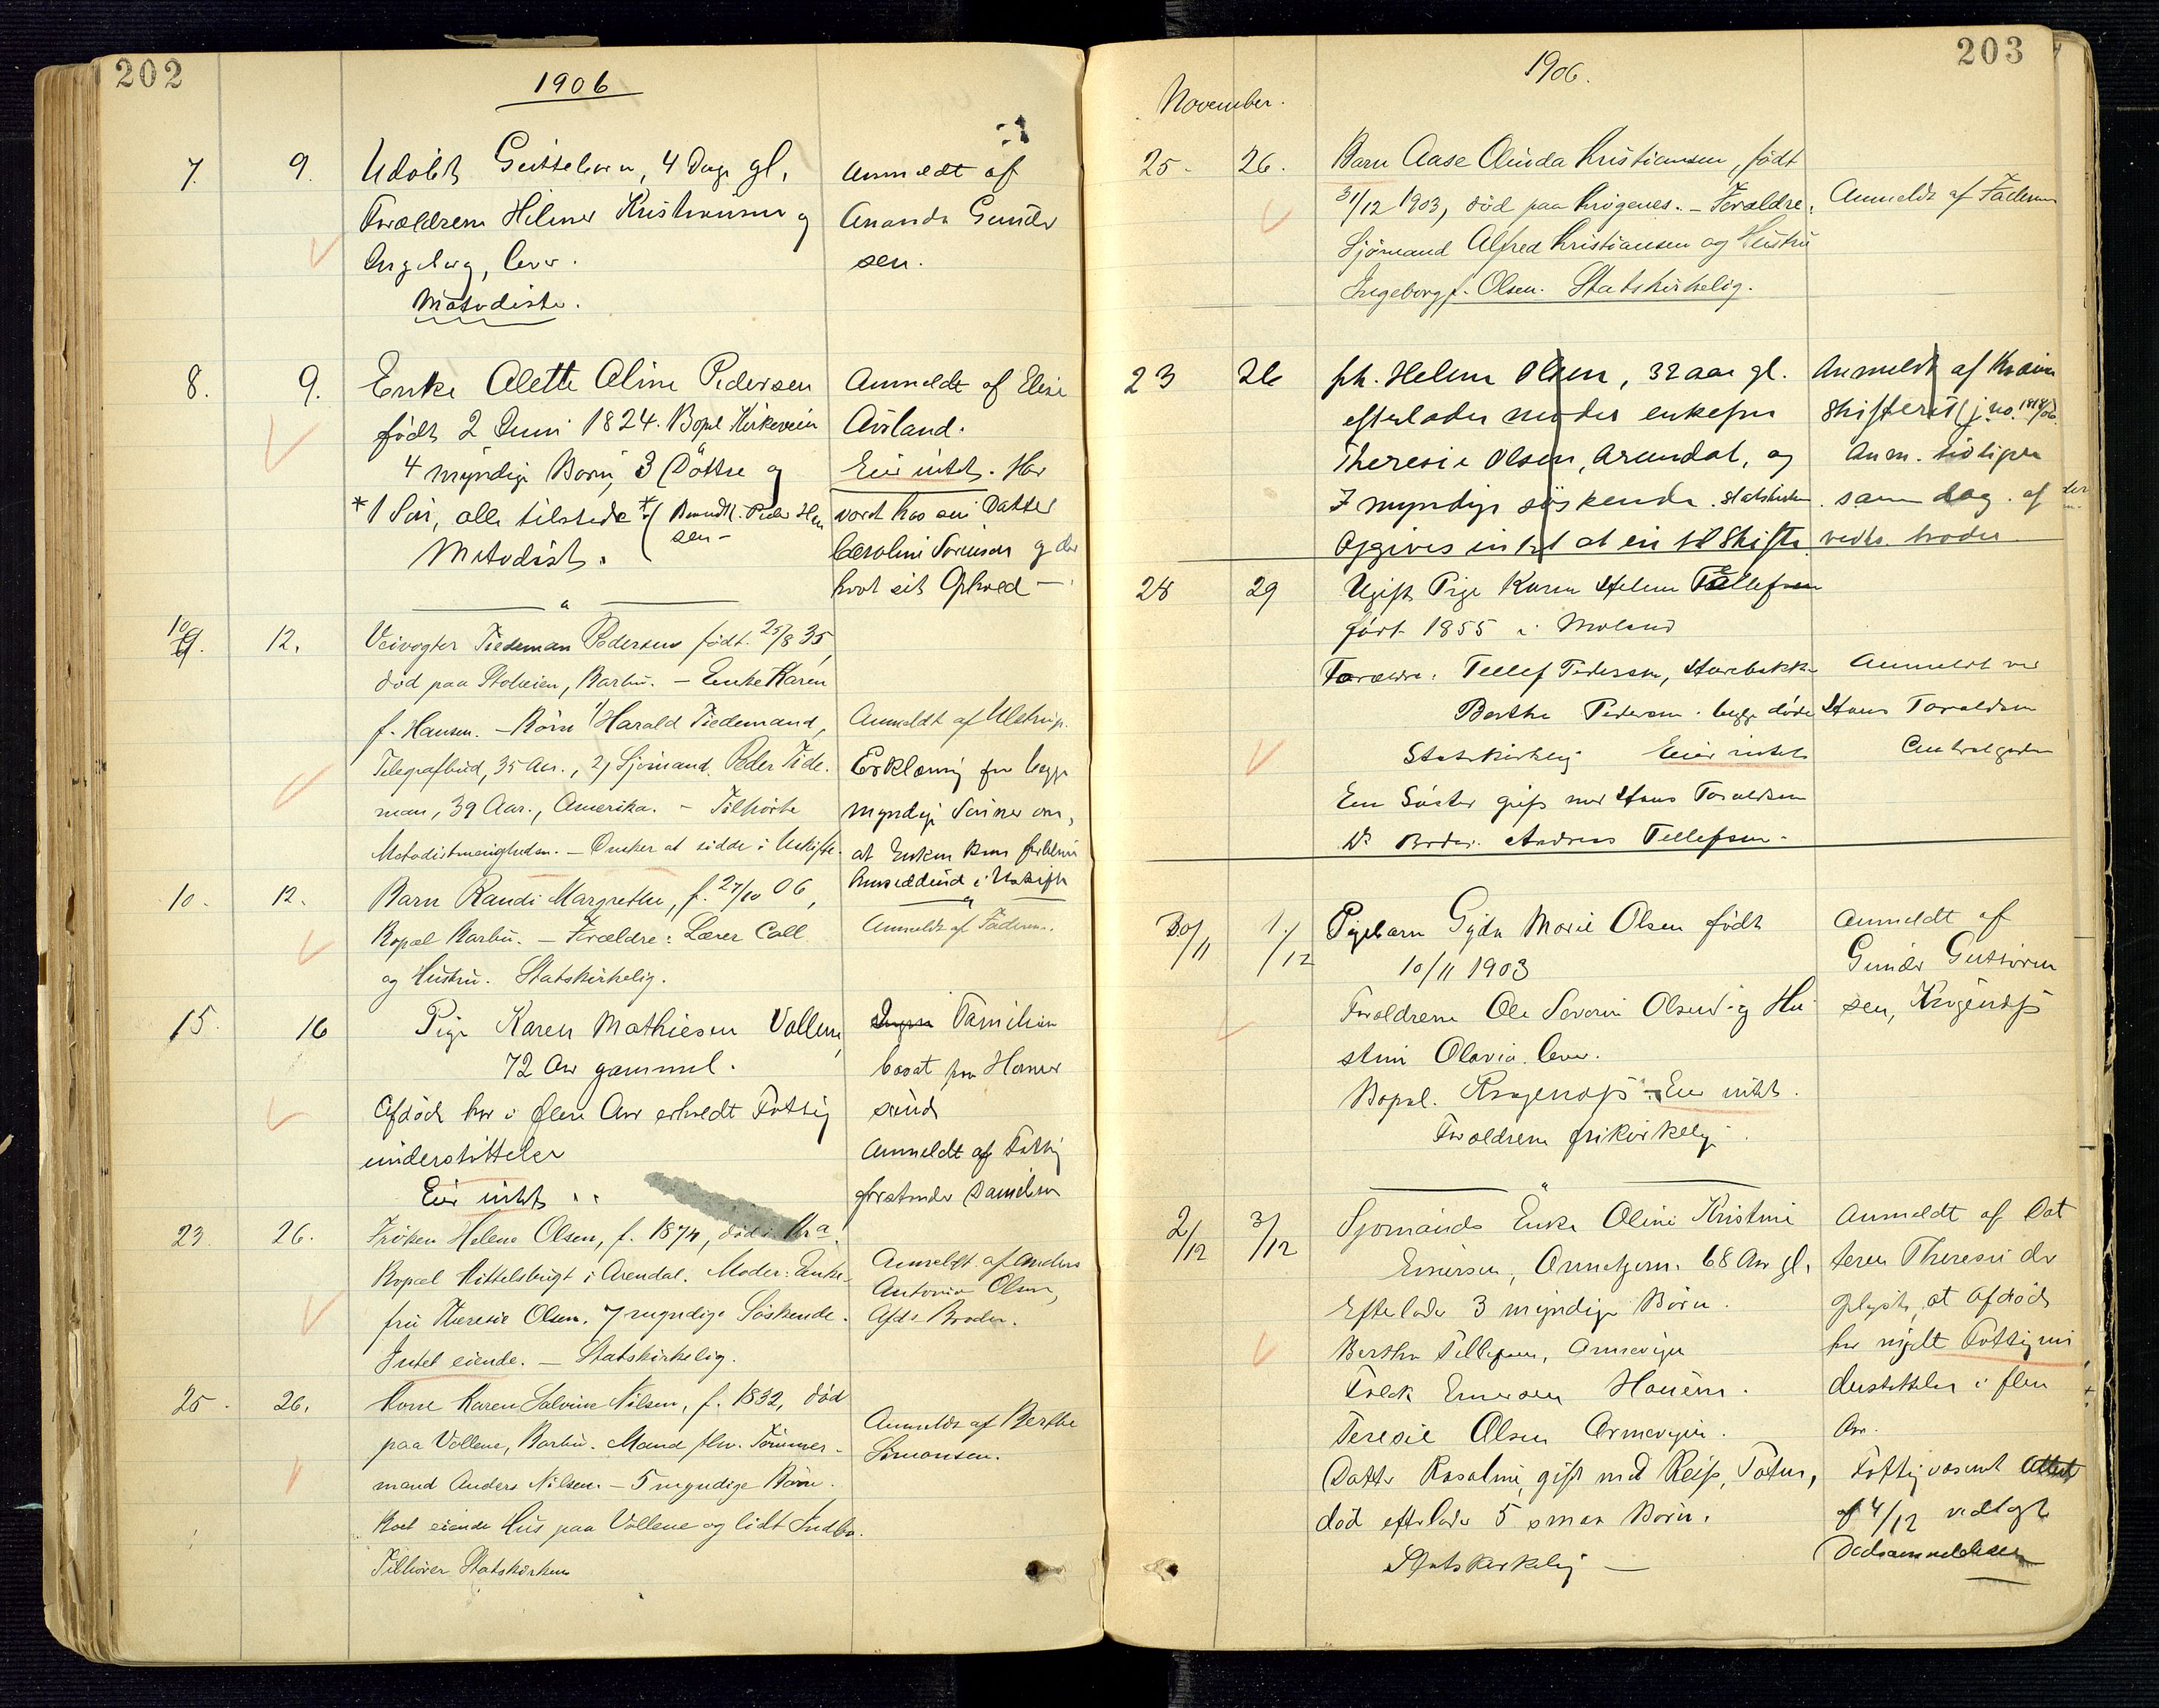 202
1906
7. 9. Udöbt Guttebarn, 4 Dage gl.
Forældrene Hilmer Kristiansen og
Ingeborg, lever.
Metodister.
Anmeldt af
Ananda Gunder
sen.
8. 9. Enke Alette Aline Pedersen
födt 2 Juni 1824. Bopæl Kirkeveien
4 myndige Börn, 3 Döttre og
* 1 Sön, alle tilstede *( Brandk. Peder Han
sen -
Metodist.
Anmeldt af Elise
Aasland.
Eier intet. Har
vært hos sin Datter
Caroline Sörensen og der
havt sit Ophold -
10/9. 12. Veivogter Tiedeman Pedersen födt 25/8 35,
död paa Stoleien, Barbu. - Enke Karen
f. Hansen. - Börn 1/ Harald Tiedemand,
Telegrafbud, 35 Aar., 2/ Sjömand Peder Tide-
man, 39 Aar., Amerika. - Tilhörte
Metodistmenigheden. - Önsker at sidde i Uskifte.
Anmeldt af Ulstrup.
Erklæring fra begge
myndige Sönner om,
at Enken kan forblive
hensiddende i Uskifte
10. 12. Barn Randi Margrethe, f. 27/10 06,
Bopæl Barbu. - Forældre: Lærer Call
og Hustru. Statskirkelig.
Anmeldt af Faderen.
15. 16 Pige Karen Mathiesen Vollene,
72 Aar gammel.
Afdöde har i flere Aar erholdt Fattig
understöttelse
Eier intet..
Familien
bosat paa Hanes
sund
Anmeldt af Fattig
forstander Danielsen
23. 26. Fröken Helene Olsen, f. 1874, död i Kra.
Bopæl Kittelsbugt i Arendal. Moder: Enke-
fru Theresie Olsen. 7 myndige Söskende.
Intet eiende. - Statskirkelig.
Anmeldt af Anders
Antonio Olsen,
Afd.s Broder.
25. 26. Kone Karen Salvine Nilsen, f. 1832, död
paa Vollene, Barbu. Mand flv. Tömmer-
mand Anders Nilsen. - 5 myndige Börn.
Boet eiende Hus paa Vollene og lidt Indbo.
Tilhörer Statskirken
Anmeldt af Berthe
Simonsen.
203
1906.
November.
25. 26. Barn Aase Alinda Kristiansen, födt
31/12 1903, död paa Krögenes. - Forældre:
Sjömand Alfred Kristiansen og Hustru
Ingeborg f. Olsen. Statskirkelig.
Anmeldt af Faderen
23 26 frk. Helene Olsen, 32 aar gl.
efterlader moder enkefru
Theresie Olsen, Arendal, og
7 myndige söskende. statskirken
Opgives intet at eie til Skifte.
Anmeldt af Kr.ania
Skifteret (j.no. 1818/06.
Anm. tidligere
samme dag af den
vedk. broder
28 29 Ugift Pige Karen Helene Tellefsen
födt 1855 i Moland
Forældre. Tellef Pedersen, Harebakken
Berthe Pedersen. begge döde
Statskirkelig Eier intet
Een Söster gift med Hans Taraldsen
Do Broder. Andreas Tellefsen -
Anmeldt ved
Hans Taraldsen
Centralgaden
30/11 1./12 Pigebarn Gyda Marie Olsen födt
10/11 1903
Forældrene Ole Severin Olsen og Hu
stru Olavia. lever.
Bopæl. Kragenæs - Eier intet.
Forældrene frikirkelige.
Anmeldt af
Gunder Guttorm
sen, Krogenæs
2/12 3/12 Sjömands Enke Oline Kristine
Einersen, Arnevigen. 68 Aar gl.
Efterlader 3 myndige Börn.
Berthe Tellefsen, Arnevigen
Falck Einersen Hansen.
Teresie Olsen Arnevigen.
Datter Rosaline, gift med Reis, Totten,
död efterlader 5 smaa Börn.
Statskirkelig -
Anmeldt af Dat
teren Theresie der
oplyste, at Afdöde
har nydt Fattigun
derstöttelse i flere
Aar.
Fattigvæsenet Attest
af 4/12 vedlagt
Dödsanmeldelsen